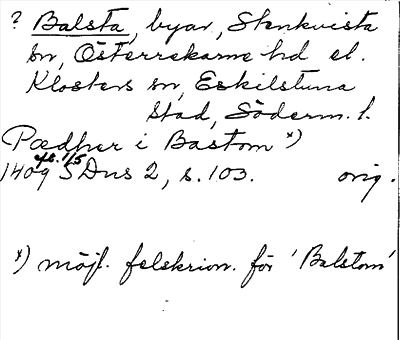 ? Balsta, byar, Stenkvista
sn, Österrekarne hd el.
Klosters sn, Eskilstuna
stad, Söderm. l.
Pædher i Bastom *)
1409 efl. 1/5 SDns 2, s. 103. orig.
*) möjl. felskrivn. för 'Balstom'